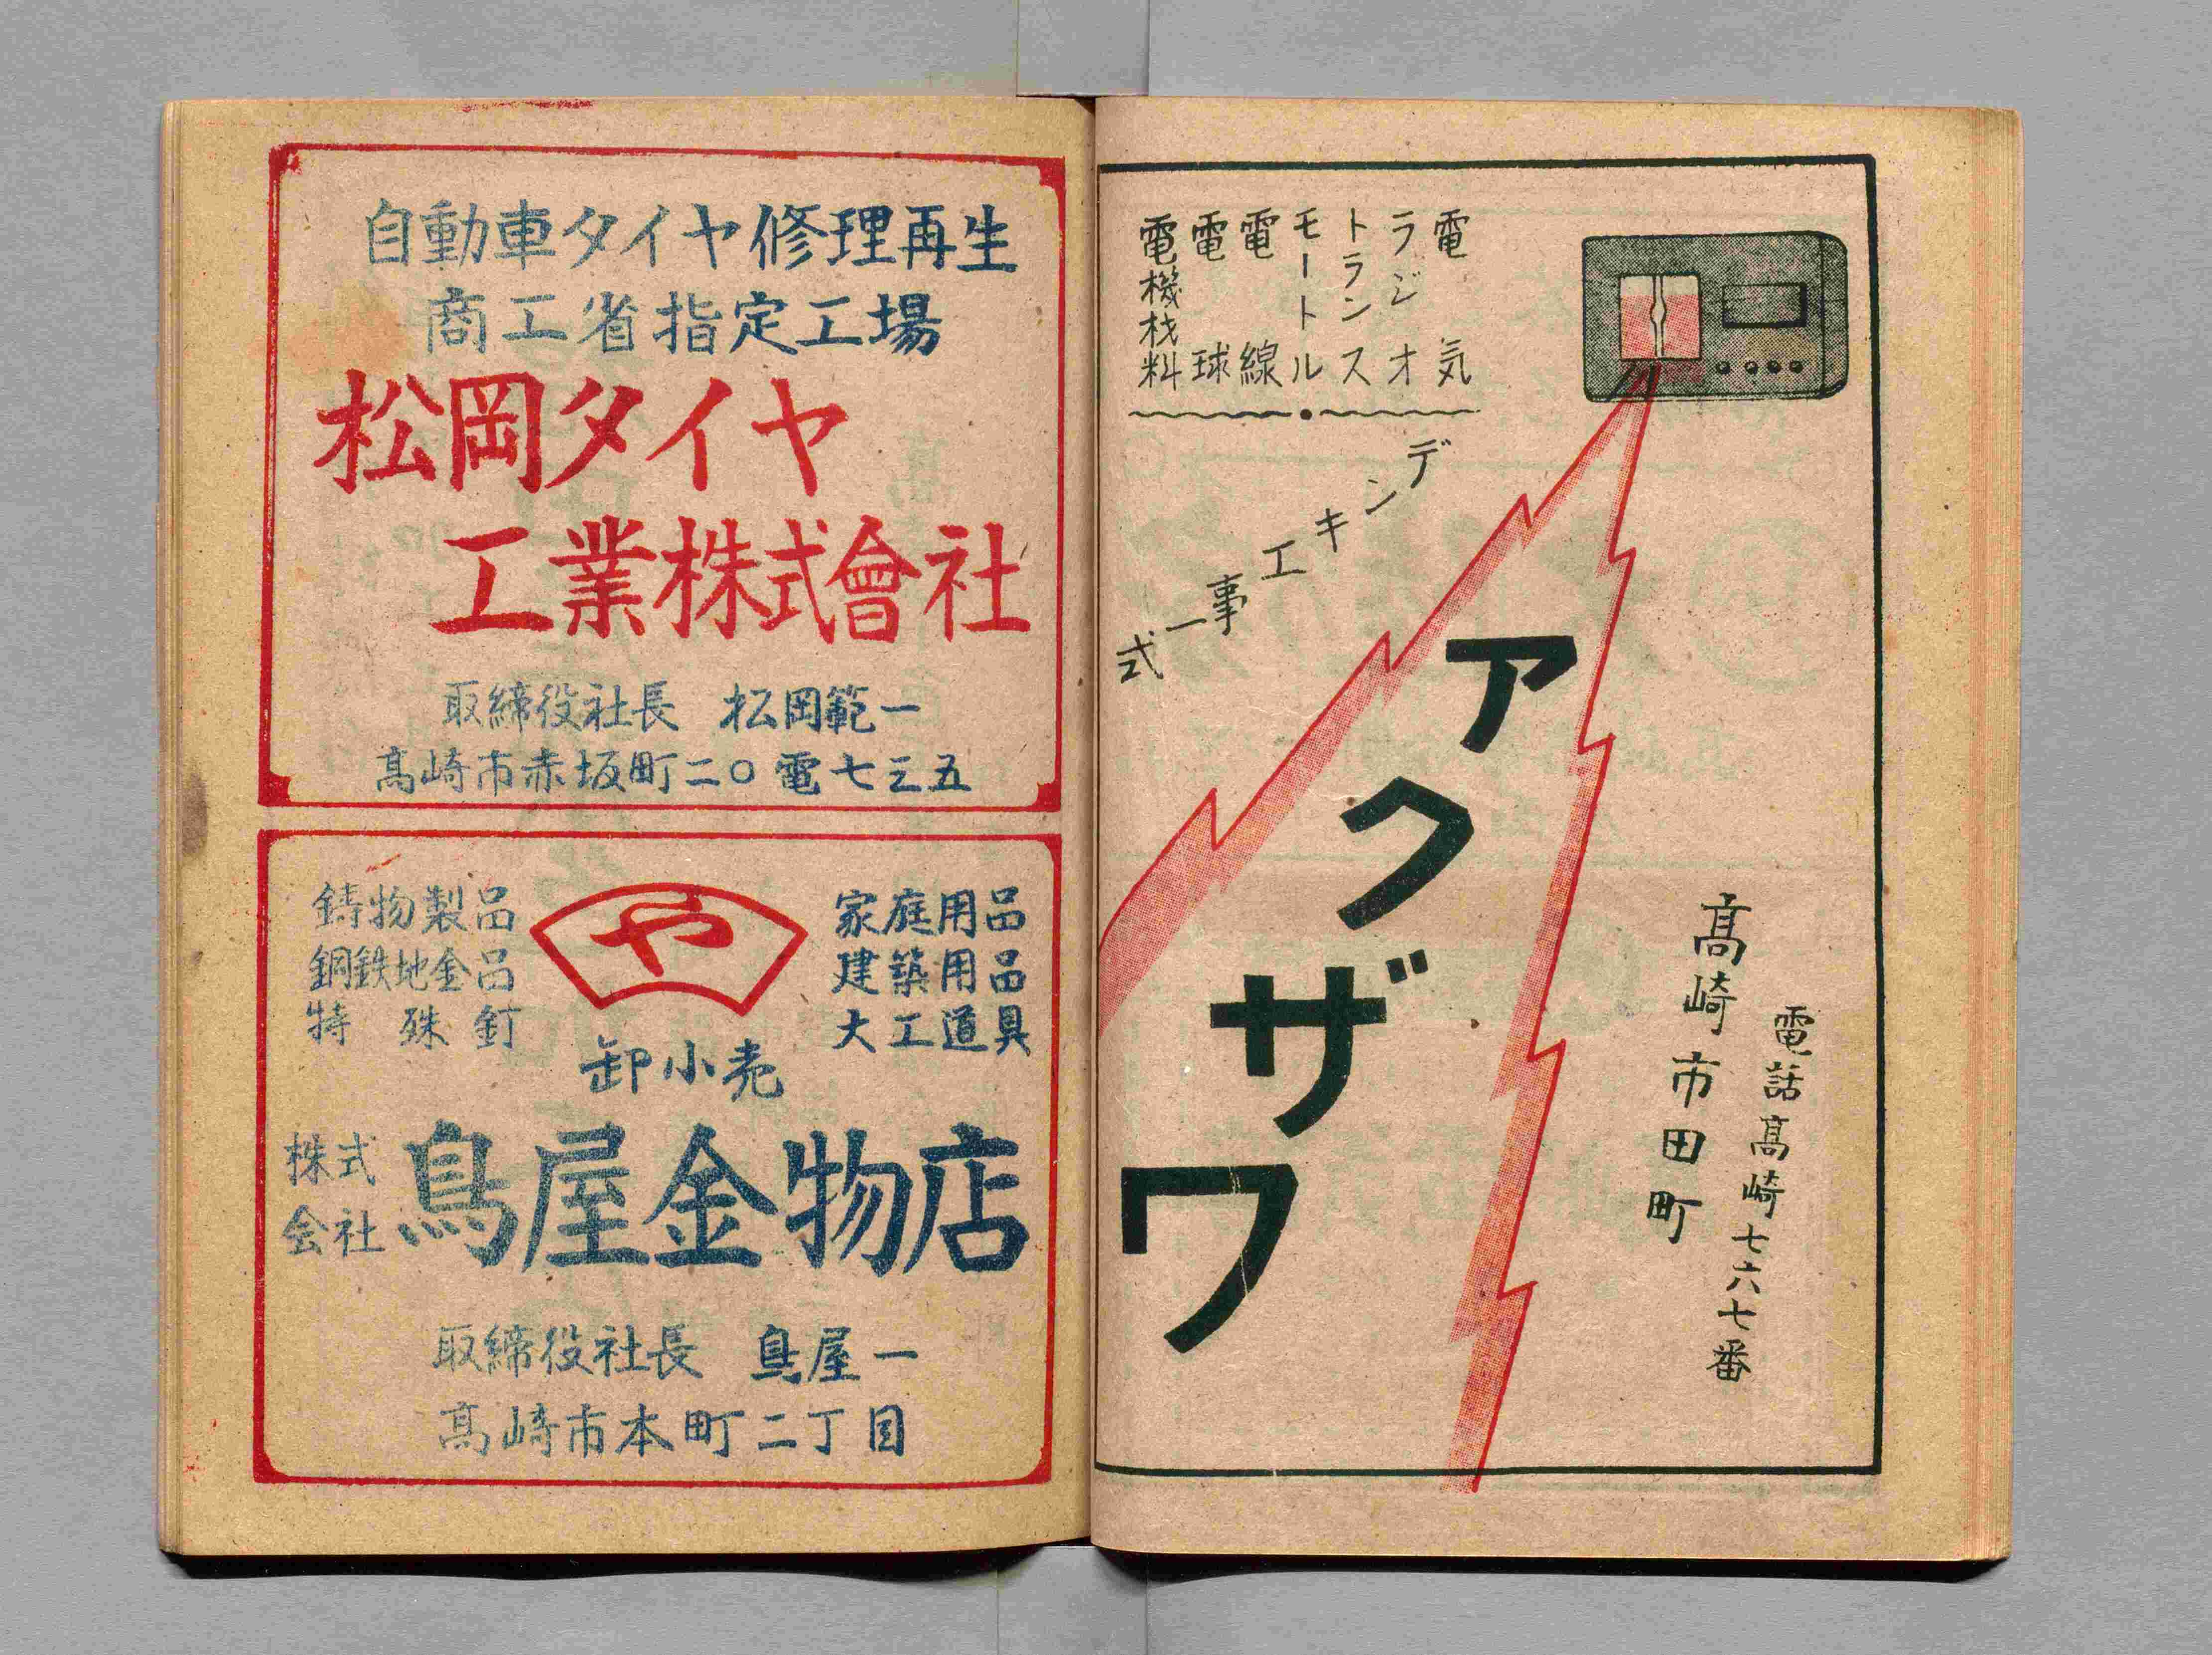 自動車タイヤ修理再生
商工省指定工場
松岡タイヤ
工業株式會社
取締役社長 松岡範一
高崎市赤坂町二〇 電七三五
鋳物製品
銅鉄地金品
特殊釘
や
家庭用品
建築用品
大工道具
卸小売
株式
会社
鳥屋金物店
取締役社長 鳥屋一
高崎市本町二丁目
電気
ラジオ
トランス
モートル
電線
電球
電機材料
デンキエ事一式
アクザワ
高崎市田町
電話高崎七六七番